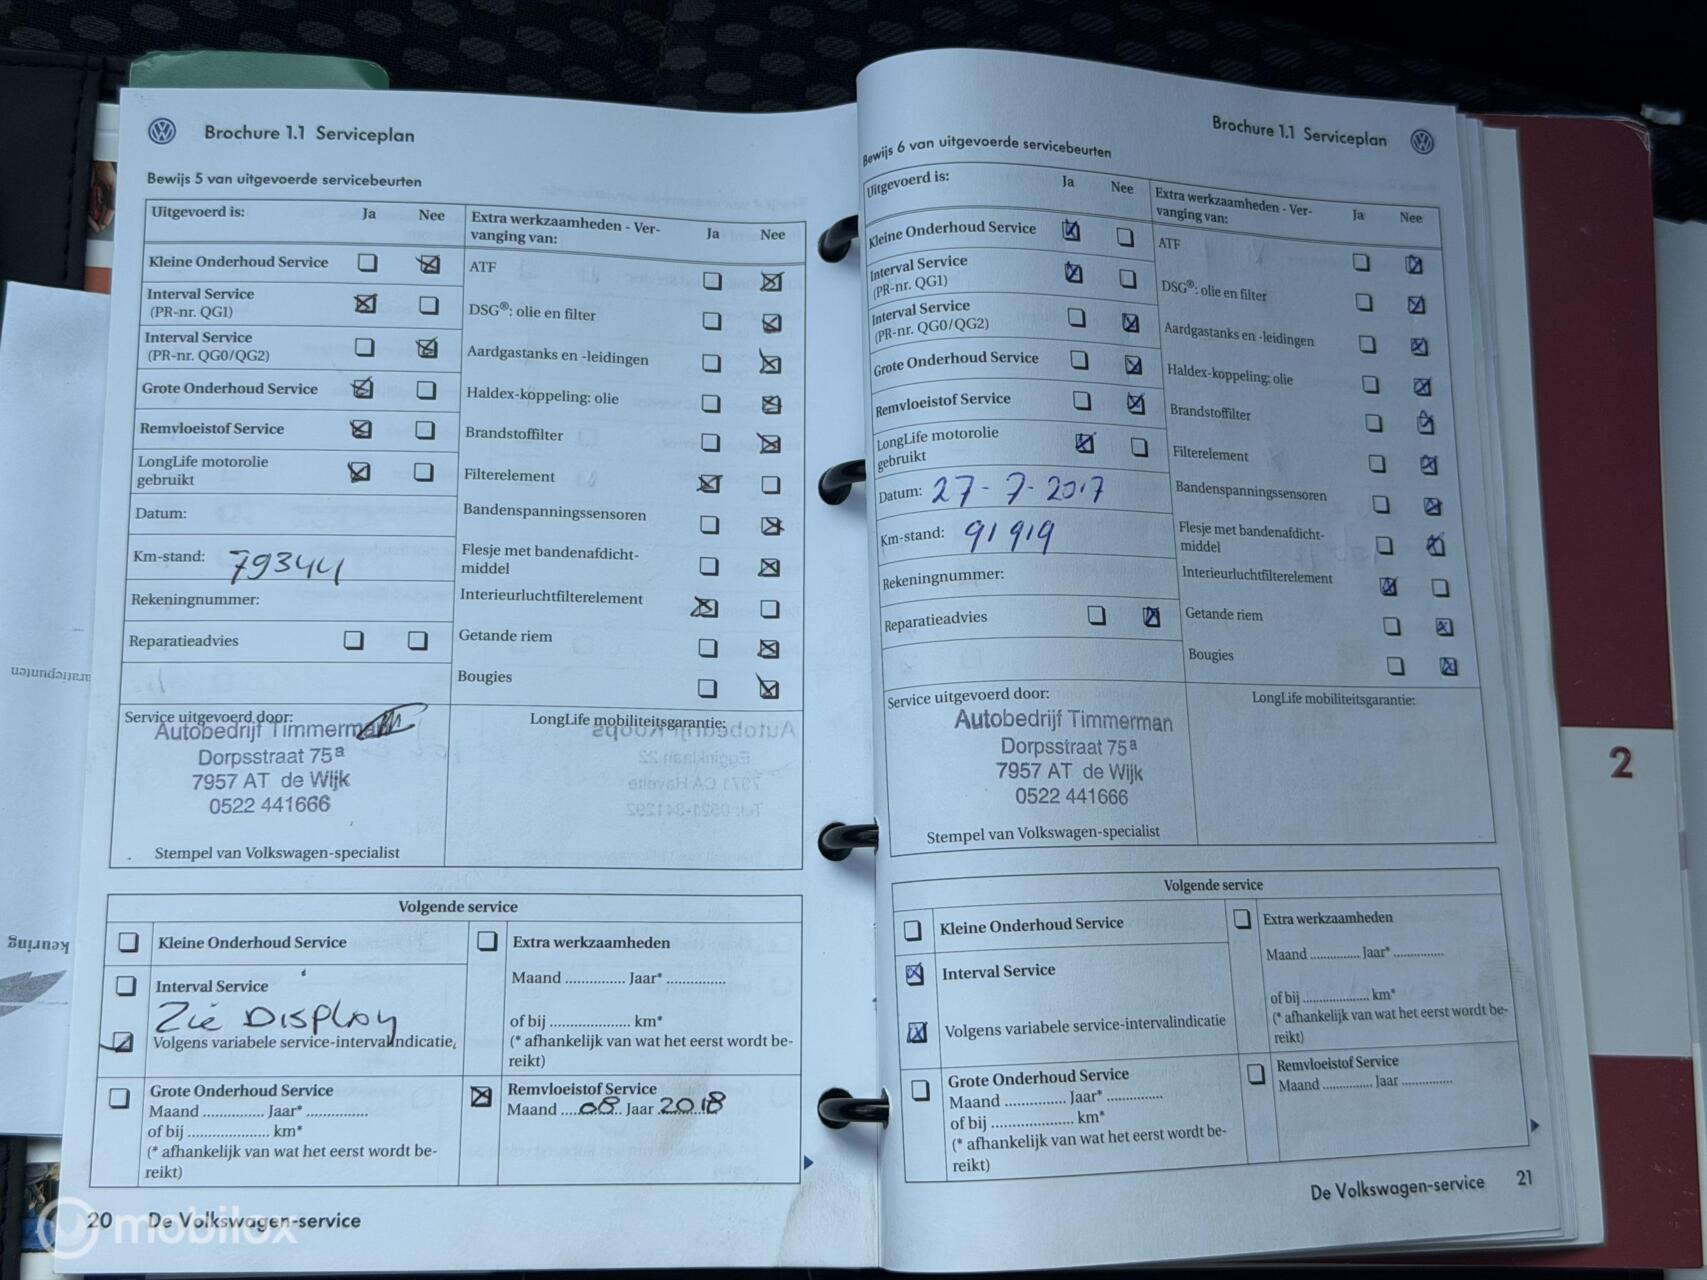 Brochure 1.1 Serviceplan
Bewijs 5 van uitgevoerde servicebeurten
Uitgevoerd is: Ja Nee
Kleine Onderhoud Service
Interval Service
(PR-nr. QG1)
Interval Service
(PR-nr. QG0/QG2)
Grote Onderhoud Service
Remvloeistof Service
LongLife motorolie
gebruikt
Datum:
Km-stand: 79344
Rekeningnummer:
Reparatieadvies
Extra werkzaamheden - Ver-
vanging van: Ja Nee
ATF
DSG®: olie en filter
Aardgastanks en -leidingen
Haldex-koppeling: olie
Brandstoffilter
Filterelement
Bandenspanningssensoren
Flesje met bandenafdicht-
middel
Interieurluchtfilterelement
Getande riem
Bougies
Service uitgevoerd door:
Autobedrijf Timmerman
Dorpsstraat 75a
7957 AT de Wijk
0522 441666
Stempel van Volkswagen-specialist
LongLife mobiliteitsgarantie:
Autobedrijf Koops
Egginklaan 22
7971 CA Havelte
Tel: 0521-341292
Volgende service
Kleine Onderhoud Service
Interval Service
Zie Display
Volgens variabele service-intervalindicatie
Grote Onderhoud Service
Maand ............... Jaar* ...............
of bij .................... km*
(* afhankelijk van wat het eerst wordt be-
reikt)
Extra werkzaamheden
Maand ............... Jaar* ...............
of bij .................... km*
(* afhankelijk van wat het eerst wordt be-
reikt)
Remvloeistof Service
Maand ....08.. Jaar 2018
20 De Volkswagen-service
Brochure 1.1 Serviceplan
Bewijs 6 van uitgevoerde servicebeurten
Uitgevoerd is: Ja Nee
Kleine Onderhoud Service
Interval Service
(PR-nr. QG1)
Interval Service
(PR-nr. QG0/QG2)
Grote Onderhoud Service
Remvloeistof Service
LongLife motorolie
gebruikt
Datum: 27-7-2017
Km-stand: 91919
Rekeningnummer:
Reparatieadvies
Extra werkzaamheden - Ver-
vanging van: Ja Nee
ATF
DSG®: olie en filter
Aardgastanks en -leidingen
Haldex-koppeling: olie
Brandstoffilter
Filterelement
Bandenspanningssensoren
Flesje met bandenafdicht-
middel
Interieurluchtfilterelement
Getande riem
Bougies
Service uitgevoerd door:
Autobedrijf Timmerman
Dorpsstraat 75a
7957 AT de Wijk
0522 441666
Stempel van Volkswagen-specialist
LongLife mobiliteitsgarantie:
Volgende service
Kleine Onderhoud Service
Interval Service
Volgens variabele service-intervalindicatie
Grote Onderhoud Service
Maand ............... Jaar* ...............
of bij .................... km*
(* afhankelijk van wat het eerst wordt be-
reikt)
Extra werkzaamheden
Maand ............... Jaar* ...............
of bij .................... km*
(* afhankelijk van wat het eerst wordt be-
reikt)
Remvloeistof Service
Maand ............... Jaar ...............
De Volkswagen-service 21
2
keuring
mobilox